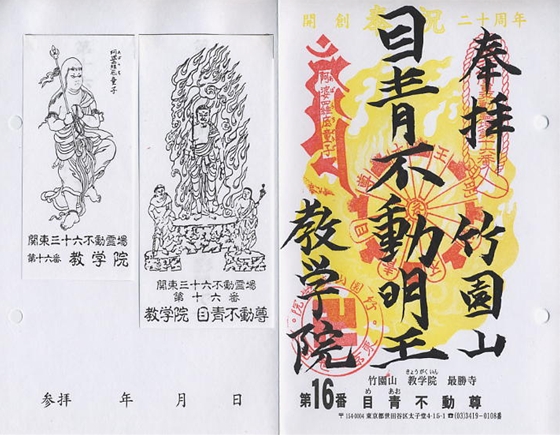 阿婆羅底童子
関東三十六不動霊場
第十六番 教学院
関東三十六不動霊場
第十六番
教学院 目青不動尊
参拝 年 月 日
開創奉祝二十周年
奉拝 竹園山
目青不動明王
阿婆羅底童子
教学院
きょうがくいん
竹園山 教学院 最勝寺
め あお
第16番 目青不動尊
〒154-0004 東京都世田谷区太子堂4-15-1 ☎(03)3419-0108番